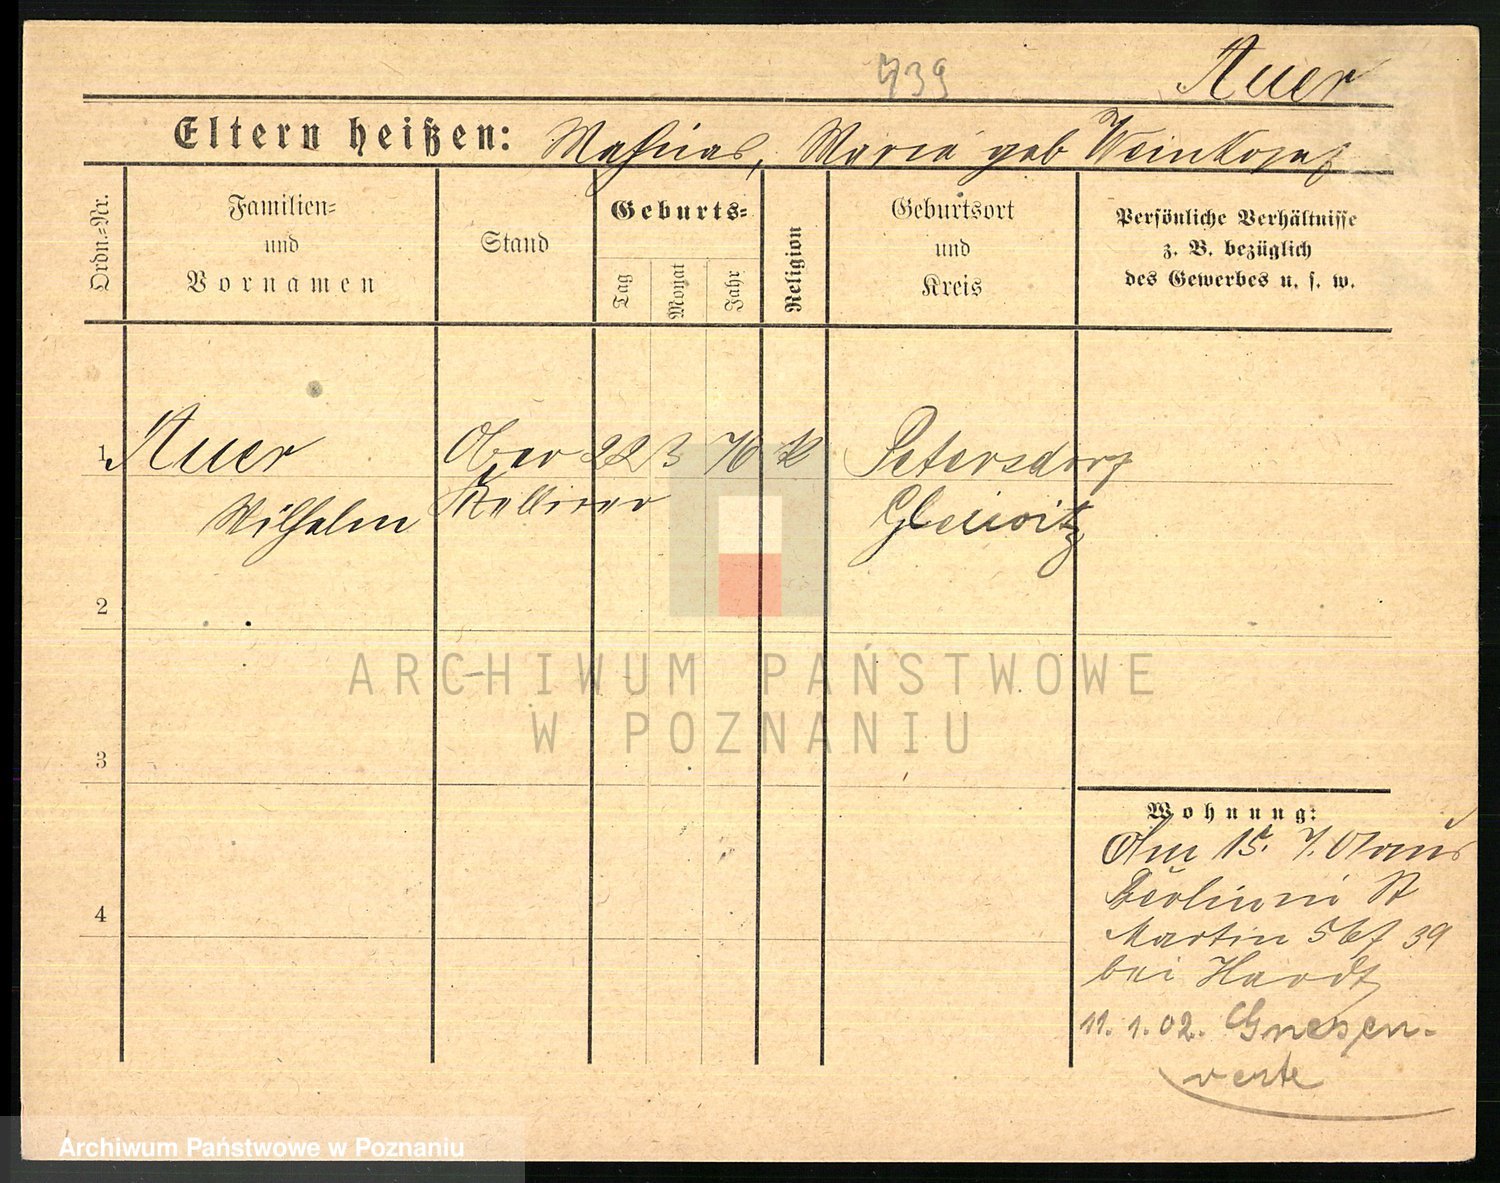 739
Auer
Eltern heißen: Mathias, Maria geb Weinkopf
Ordn.-Nr.
Familien- und Vornamen
Stand
Geburts-
Tag
Monat
Jahr
Religion
Geburtsort und Kreis
Persönliche Verhältnisse z. B. bezüglich des Gewerbes u. s. w.
1 Auer Ober 22 3 76 k Petersdorf
Wilhelm Kellner Gleiwitz
2
3
4
Wohnung:
Am 15. 7. 01 aus
Berlin St
Martin 39
bei Hardt
11. 1. 02. Gnesen-
verte
ARCHIWUM PAŃSTWOWE
W POZNANIU
Archiwum Państwowe w Poznaniu